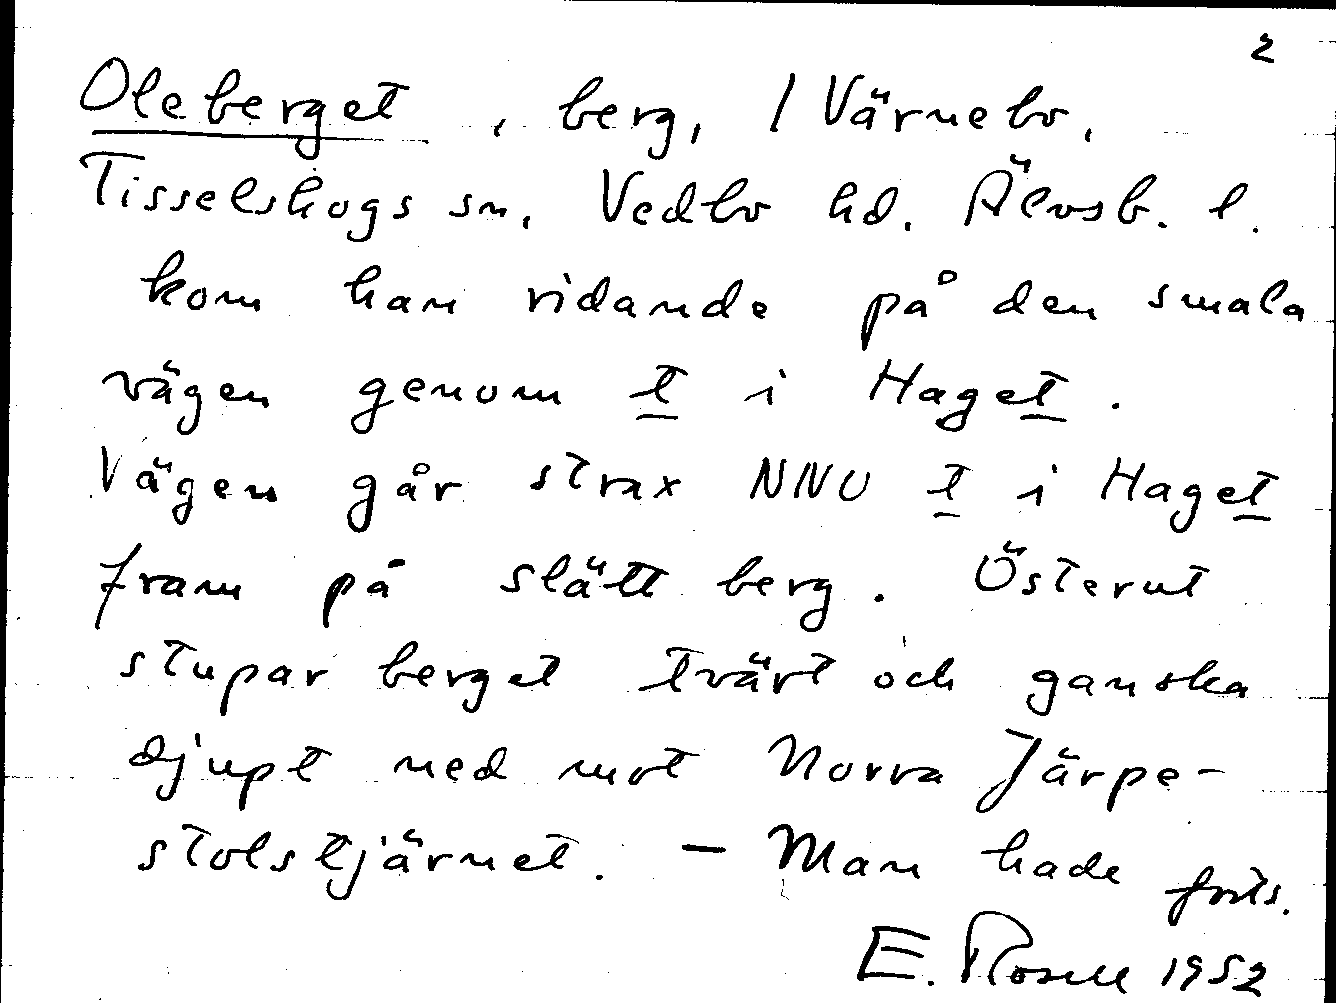 2
Oleberget, berg, 1 Värnebo,
Tisselskogs sn, Vedbo hd. Älvsb. l.
kom han ridande på den smala
vägen genom t i Haget.
Vägen går strax NNO t i Haget
fram på slätt berg. Österut
stupar berget tvärt och ganska
djupt ned mot Norra Järpe-
stolstjärnet. – Man hade forts.
E. Rosell 1952